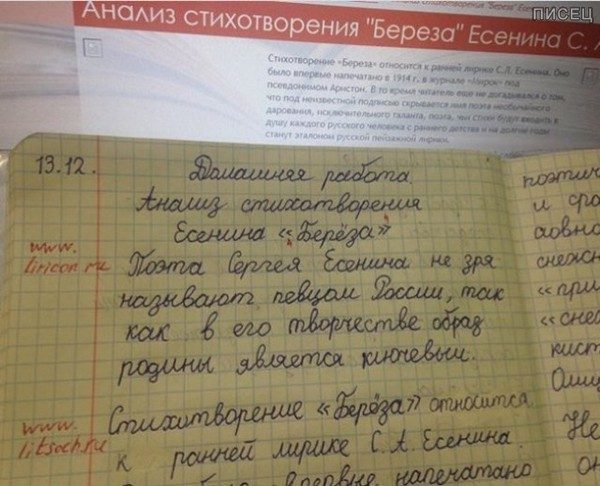 ПИСЕЦ
Анализ стихотворения "Береза" Есенина С. А
Стихотворение «Береза» относится к ранней лирике С.А. Есенина. Оно
было впервые напечатано в 1914 г. в журнале «Мирок» под
псевдонимом Аристон. В то время читатель еще не догадывался о том,
что под неизвестной подписью скрывается имя поэта необычайного
дарования, исключительного таланта, поэта, чьи стихи будут входить в
душу каждого русского человека с раннего детства и на долгие годы
станут эталоном русской пейзажной лирики.
13.12.
Домашняя работа
Анализ стихотворения
Есенина «Берёза»
www.
liricon.ru
Поэта Сергея Есенина не зря
называют певцом России, так
как в его творчестве образ
родины является ключевым.
www.
litsoch.ru
Стихотворение «Берёза» относится
к ранней лирике С.А. Есенина.
впервые напечатано
поэтич
и сра
снежн
«при
«сне
кист
Не